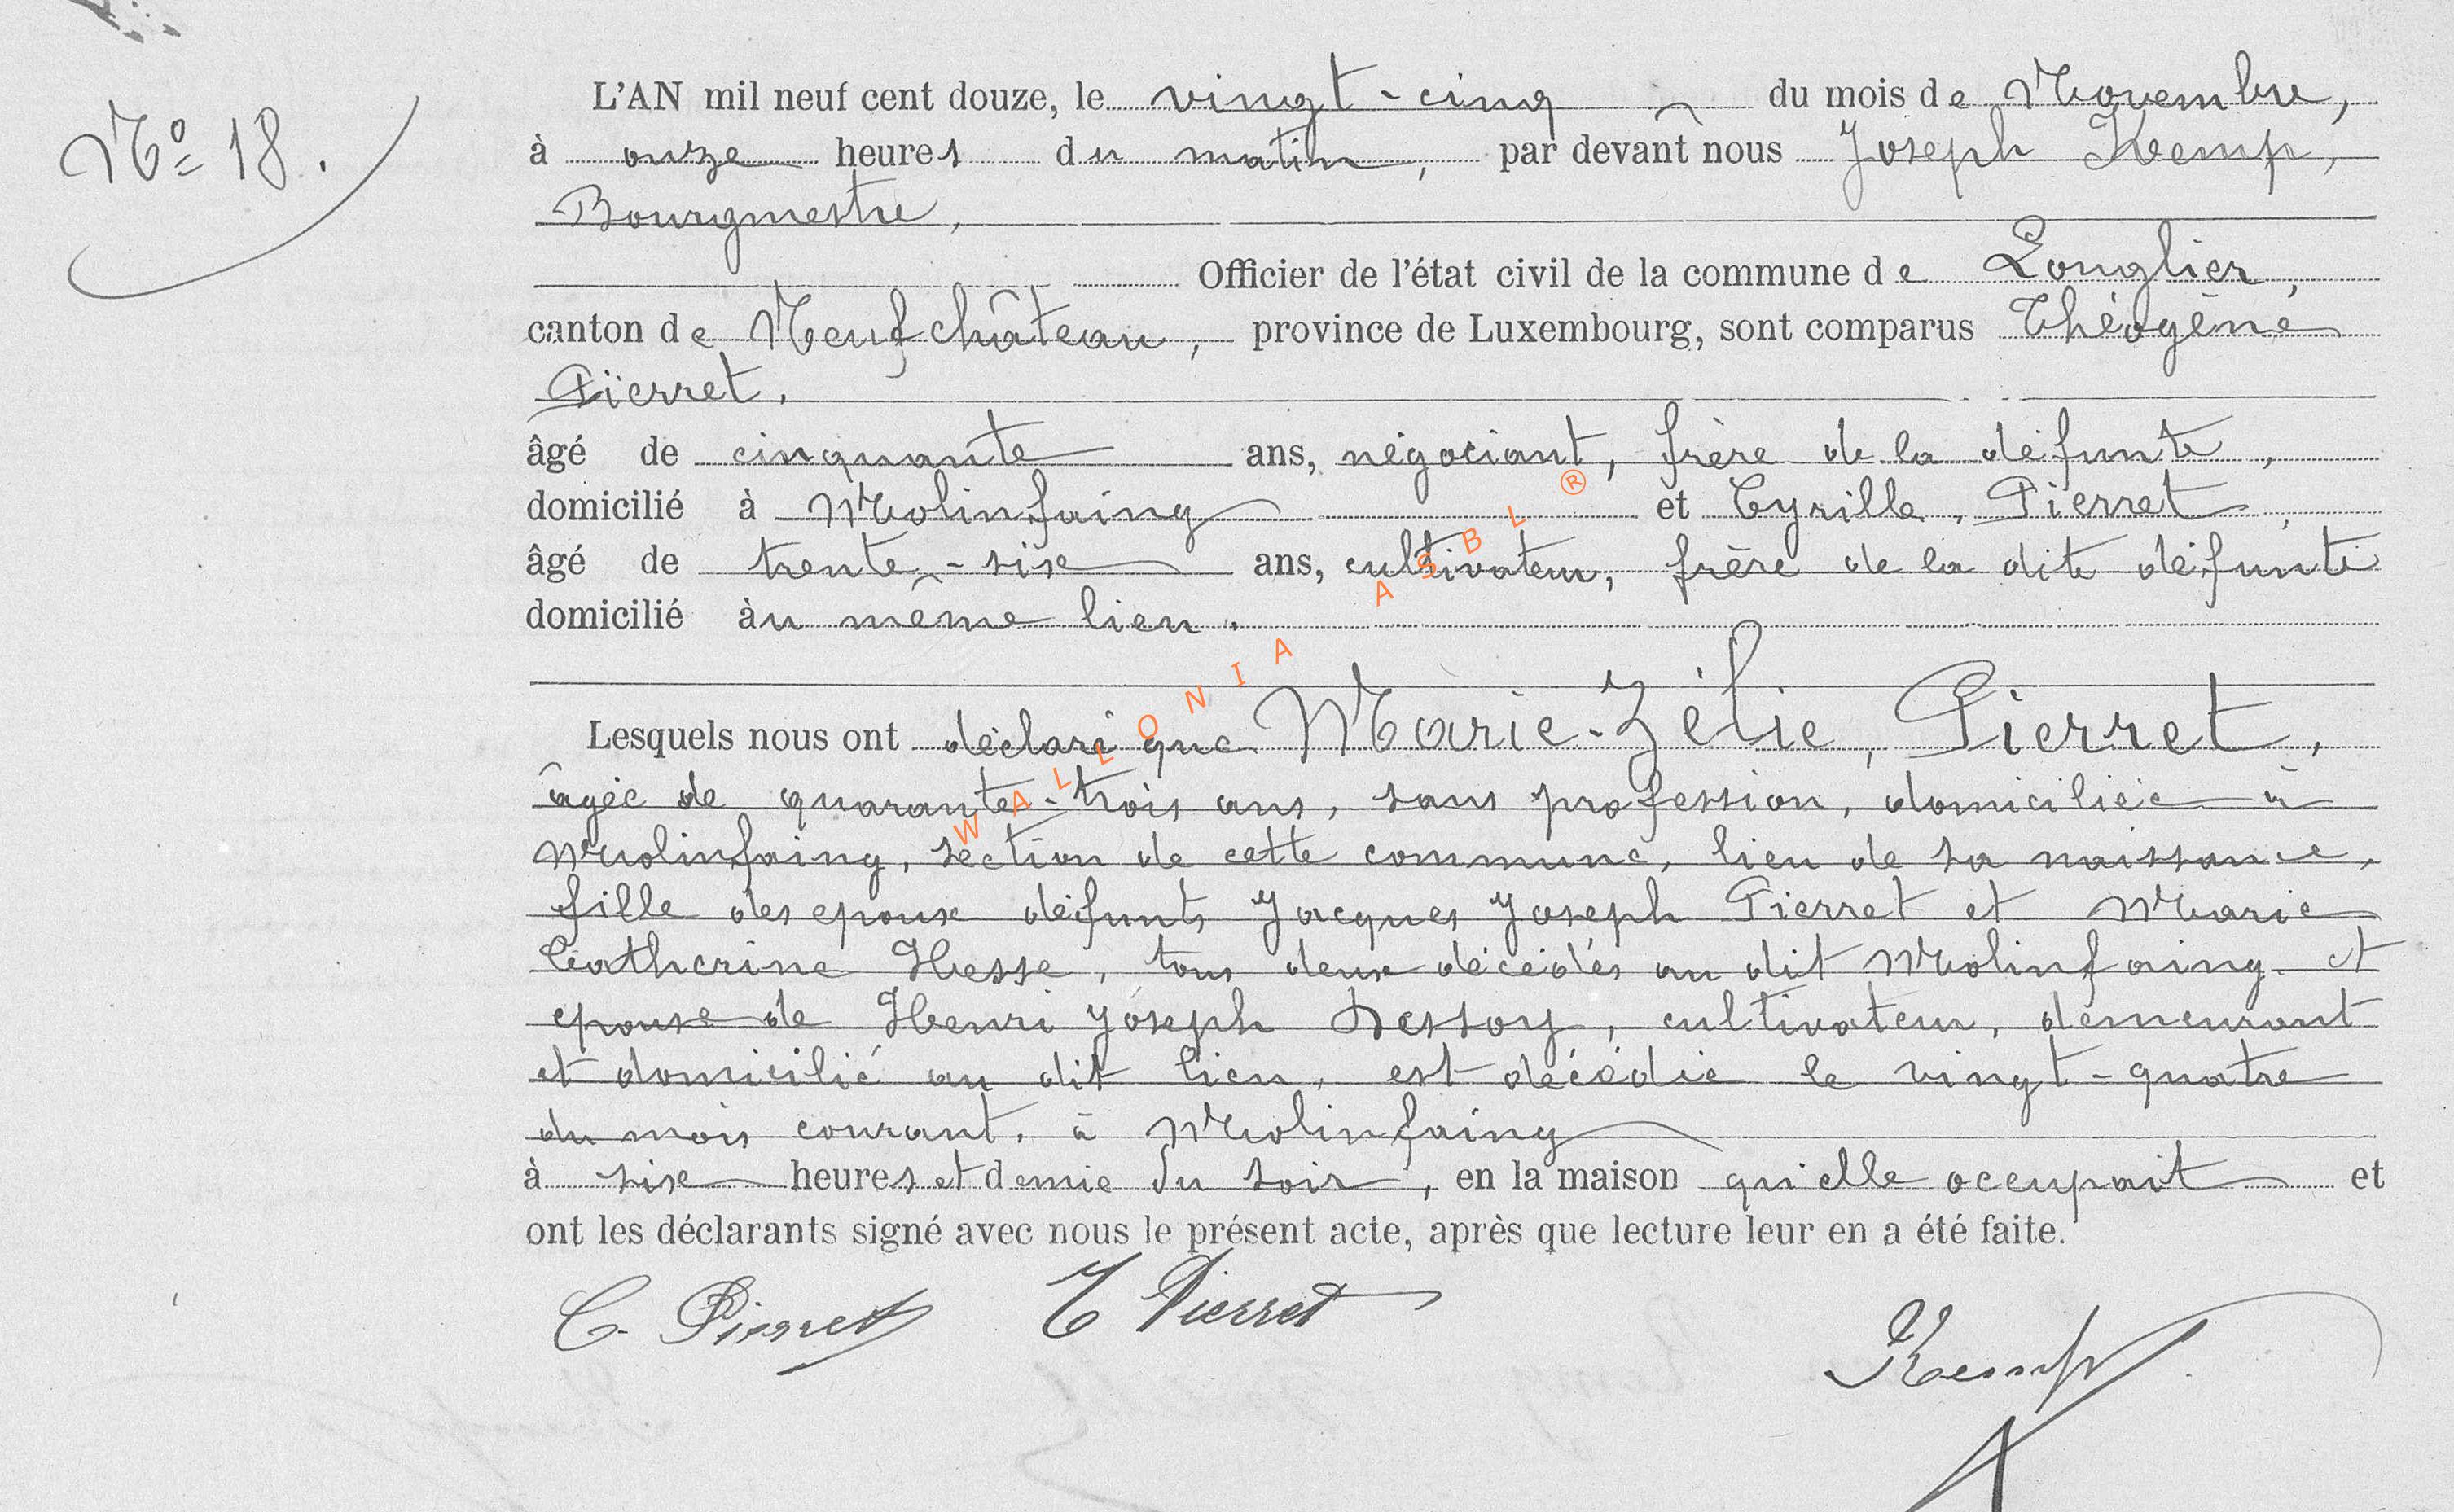 No 18.
L'AN mil neuf cent douze, le vingt-cinq du mois de Novembre,
à onze heures du matin, par devant nous Joseph Kemp,
Bourgmestre,
Officier de l'état civil de la commune de Longlier,
canton de Neufchâteau, province de Luxembourg, sont comparus Théogène
Pierret,
âgé de cinquante ans, négociant, frère de la défunte,
domicilié à Molinfaing et Cyrille, Pierret,
âgé de trente-six ans, cultivateur, frère de la dite défunte
domicilié àu même lieu.
Lesquels nous ont déclaré que Marie-Zélie, Pierret,
âgée de quarante-trois ans, sans profession, domiciliée à
Molinfaing, section de cette commune, lieu de sa naissance,
fille des epoux défunts Jacques Joseph Pierret et Marie
Catherine Hesse, tous deux décédés au dit Molinfaing et
epouse de Henri Joseph Dessoy, cultivateur, demeurant
et domicilié au dit lieu, est décédée le vingt-quatre
du mois courant, à Molinfaing
à six heures et demie du soir, en la maison qu'elle occupait et
ont les déclarants signé avec nous le présent acte, après que lecture leur en a été faite.
C. Pierret T Pierret
Kemp
WALLONIA ASBL ®